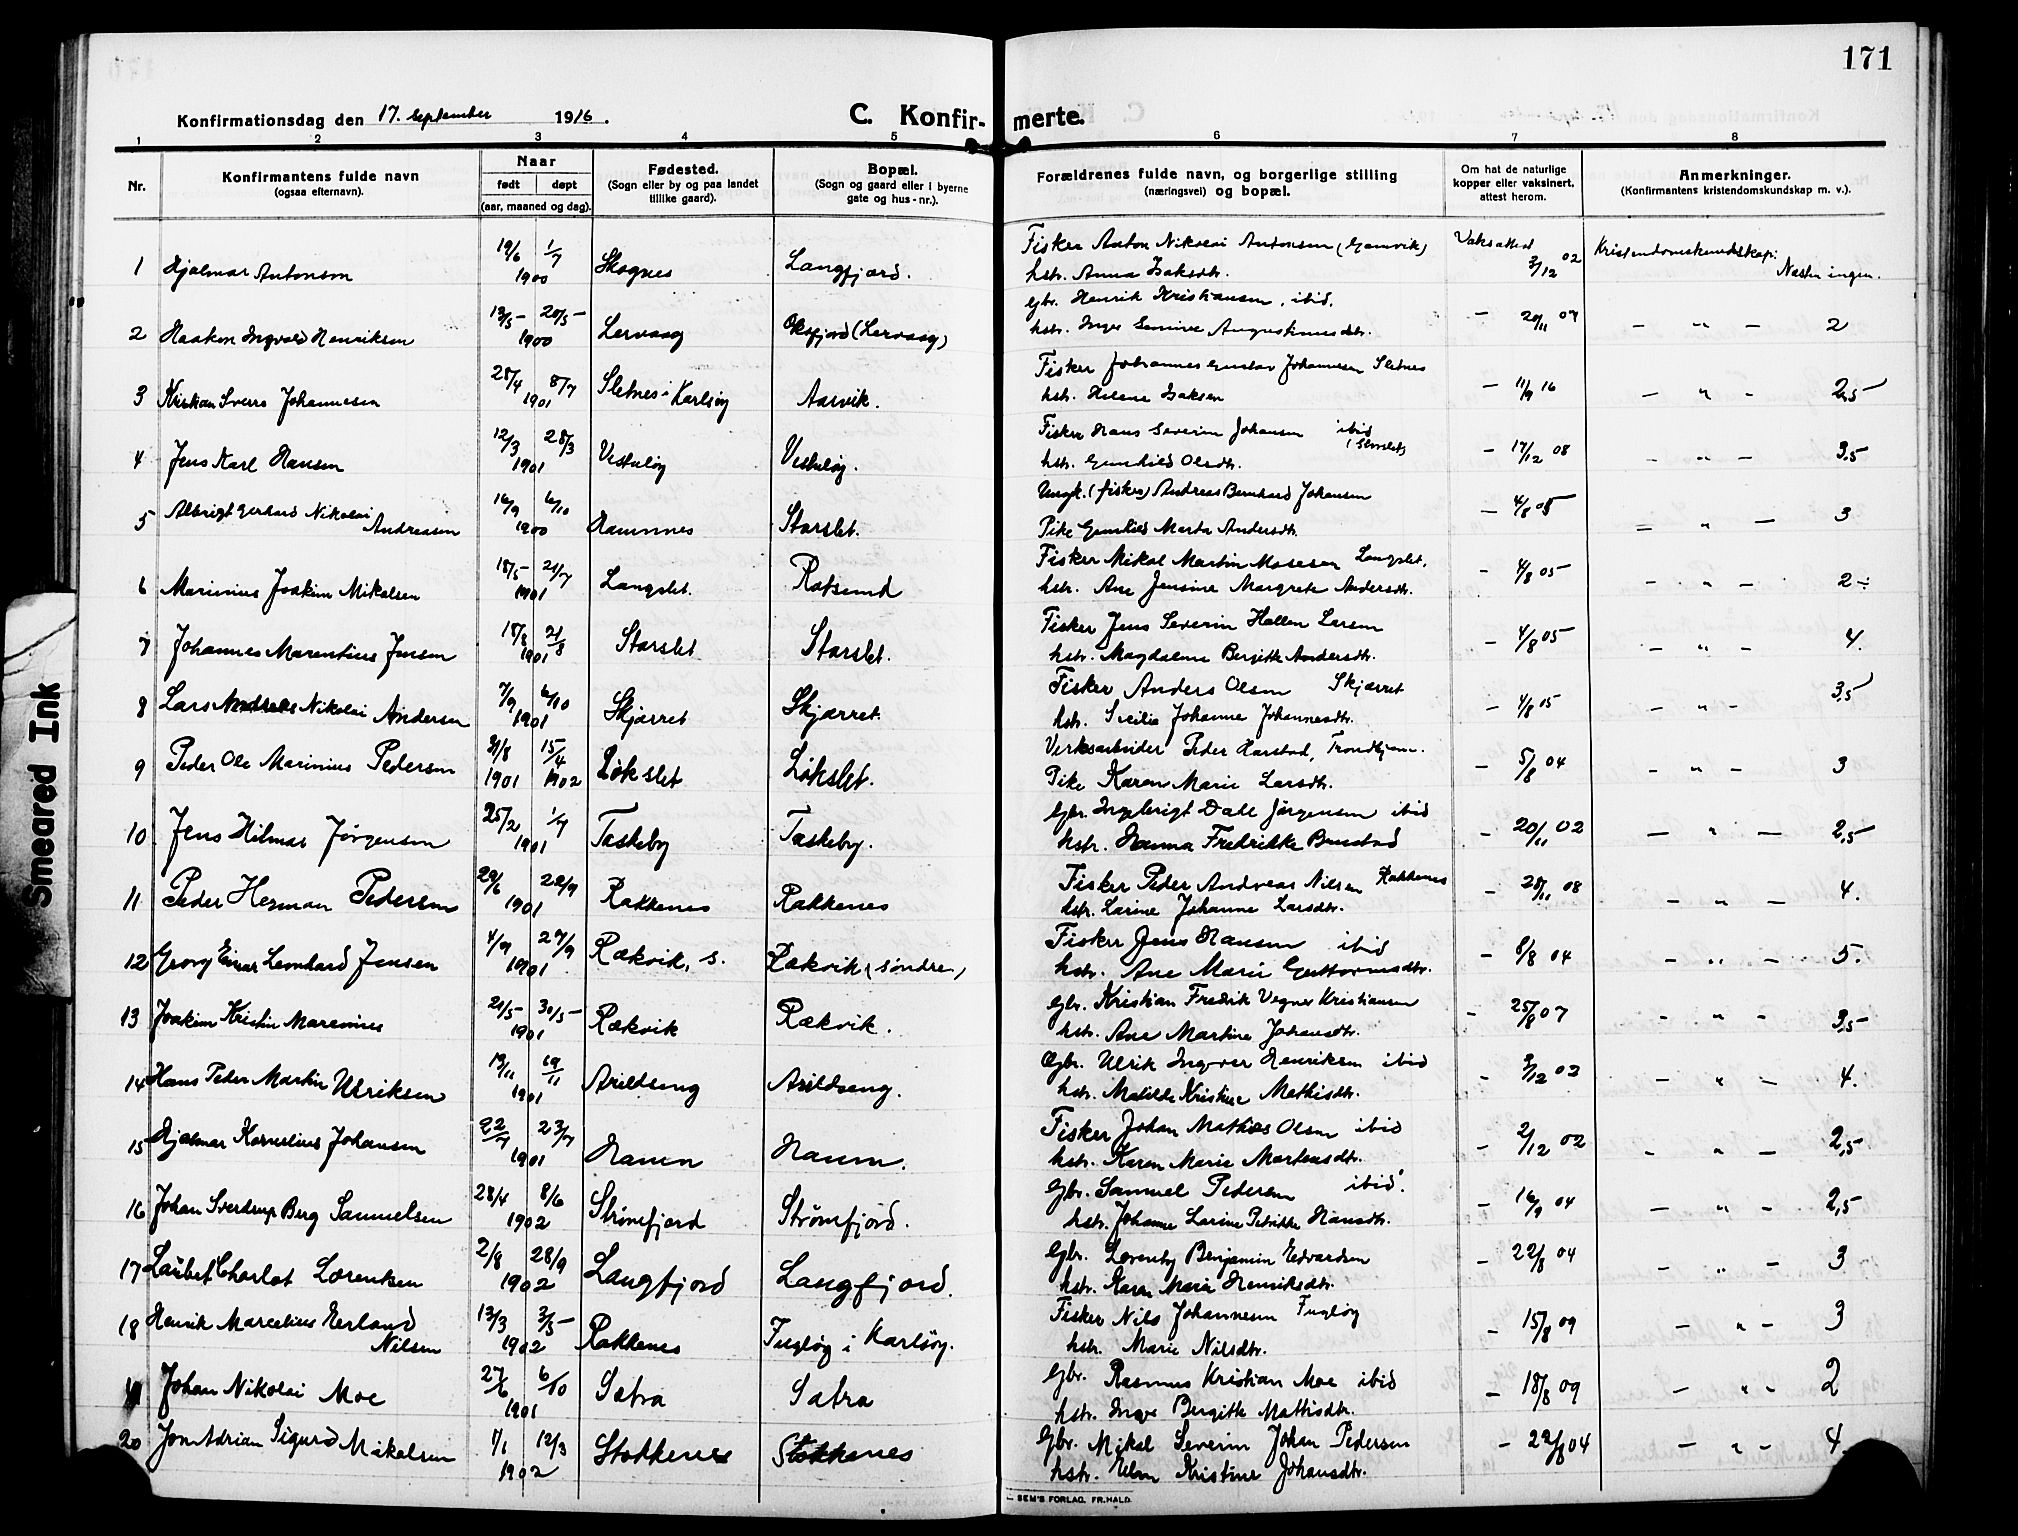 171
Konfirmationsdag den 17. september 1916.
C. Konfir-merte.
1 2 3 4 5 6 7 8
Nr.
Konfirmantens fulde navn
(ogsaa efternavn).
Naar
født døpt
(aar, maaned og dag).
Fødested.
(Sogn eller by og paa landet
tillike gaard).
Bopæl.
(Sogn og gaard eller i byerne
gate og hus-nr.).
Forældrenes fulde navn, og borgerlige stilling
(næringsvei) og bopæl.
Om hat de naturlige
kopper eller vaksinert,
attest herom.
Anmerkninger.
(Konfirmantens kristendomskundskap m. v.).
1 Hjalmar Antonsen 19/6 1/7 1900 Skognes Langfjord. Fisker Anton Nikolai Antonsen (Gamvik) Vaksattest 3/12 02 Kristendomskundskap:
hstr. Anna Isaksdtr. Næsten ingen.
2 Haakon Ingvald Henriksen 13/5 20/5 1900 Lervaag Oksfjord (Lervaag) Gbr. Henrik Kristiansen, ibid. - 20/11 07 - " - 2
hstr. Inger Augustinusdtr.
3 Kristian Sverre Johannesen 28/4 8/7 1901 Sletnes i Karlsøy Aarvik. Fisker Johannes Gustav Johannesen Sletnes - 11/9 16 - " - 2,5
hstr. Helene Isaksen
4 Jens Karl Hansen 12/3 28/3 1901 Vesterløy. Fisker Hans Severin Johansen ibid - 17/12 08 - " - 3,5
hstr. Gunhild Olsdtr.
5 Albrigt Gerhard Nikolai Andreasen 16/9 6/10 1900 Hamnes Storslet. Ungk. (fisker) Andreas Bernhard Johansen - 4/8 05 - " - 3
Pike Gunhild Marta Andersdtr.
6 Marinius Joakim Mikalsen 18/5 21/7 1901 Langslet. Rotsund Fisker Mikal Martin Mosesen Langslet. - 4/8 05 - " - 2 -
hstr. Ane Jensine Margrete Andersdtr.
7 Johannes Marentius Jensen 18/8 21/8 1901 Storslet Storslet. Fisker Jens Severin Hallen Larsen - 4/8 05 - " - 4.
hstr. Magdalena Bergitte Andersdtr.
8 Lars Andreas Nikolai Andersen 7/9 6/10 1901 Skjærret Skjærret. Fisker Anders Olsen Skjærret - 4/8 05 - " - 3,5
hstr. Sicilie Johanne Johannesdtr.
9 Peder Ole Marinius Pedersen 31/8 1901 15/4 1902 Løkslet Løkslet. Verksarbeider Peder Harstad, Trondhjem. - 5/8 04 - " - 3
Pike Karen Marie Larsdtr.
10 Jens Hilmar Jørgensen 25/2 1/7 1901 Taskeby Taskeby. Gbr. Ingebrigt Dahl Jørgensen ibid - 20/11 02 - " - 2,5
hstr. Hanna Fredrikke
11 Peder Herman Pedersen 29/6 1901 Rakkenes Rakkenes Fisker Peder Andreas Nilsen Rakkenes - 28/11 08 - " - 4.
hstr. Larine Johanne Larsdtr.
12 Georg Einar Leonhard Jensen 4/9 27/9 1901 Rækvik, s. Rækvik (søndre) Fisker Jens Hansen ibid - 8/8 04 - " - 5.
hstr. Ane Marie Guttormsdtr.
13 Joakim Kristin Marenius 21/5 30/5 1901 Rækvik Rækvik. Gbr. Kristian Fredrik Vegner Kristiansen - 25/8 07 - " - 3,5
hstr. Ane Martine Johansdtr.
14 Hans Peder Martin Ulriksen 13/11 19/11 1901 Arildseng Arildseng. Gbr. Ulrik Ingver Henriksen ibid - 3/12 03 - " - 4.
hstr. Matilde Kristine Mathisdtr.
15 Hjalmar Kornelius Johansen 22/7 23/7 1901 Havnn Havnn. Fisker Johan Mathias Olsen ibid - 2/12 02 - " - 2,5
hstr. Karen Marie Mortensdtr.
16 Johan Sverdrup Berg Samuelsen 28/4 8/6 1902 Strømfjord Strømfjord. Gbr. Samuel Pedersen ibid. - 16/9 04 - " - 2,5
hstr. Johanne Larine Petrikke Hansdtr.
17 Charlot Lorentsen 2/8 28/9 1902 Langfjord Langfjord. Gbr. Benjamin Edvardsen - 22/8 04 - " - 3
hstr. Karen Marie Henriksdtr.
18 Henrik Marcelius Erland Nilsen 13/3 3/5 1902 Rakkenes Fugløy i Karlsøy. Fisker Nils Johannesen Fugløy - 15/8 09 - " - 3
hstr. Marie Nilsdtr.
Johan Nikolai Moe 27/6 6/10 1901 Sætra Sætra Gbr. Rasmus Kristian Moe ibid - 18/8 09 - " - 2
hstr. Inger Bergitte Mattisdtr.
20 Jon Adrian Sigurd Mikalsen 1/1 12/3 1902 Stokkenes Stokkenes Gbr. Mikal Severin Johan Pedersen - 22/8 04 - " - 4
hstr. Ellen Kristine Johansdtr.
SEM'S FORLAG, FR.HALD.
Smeared Ink